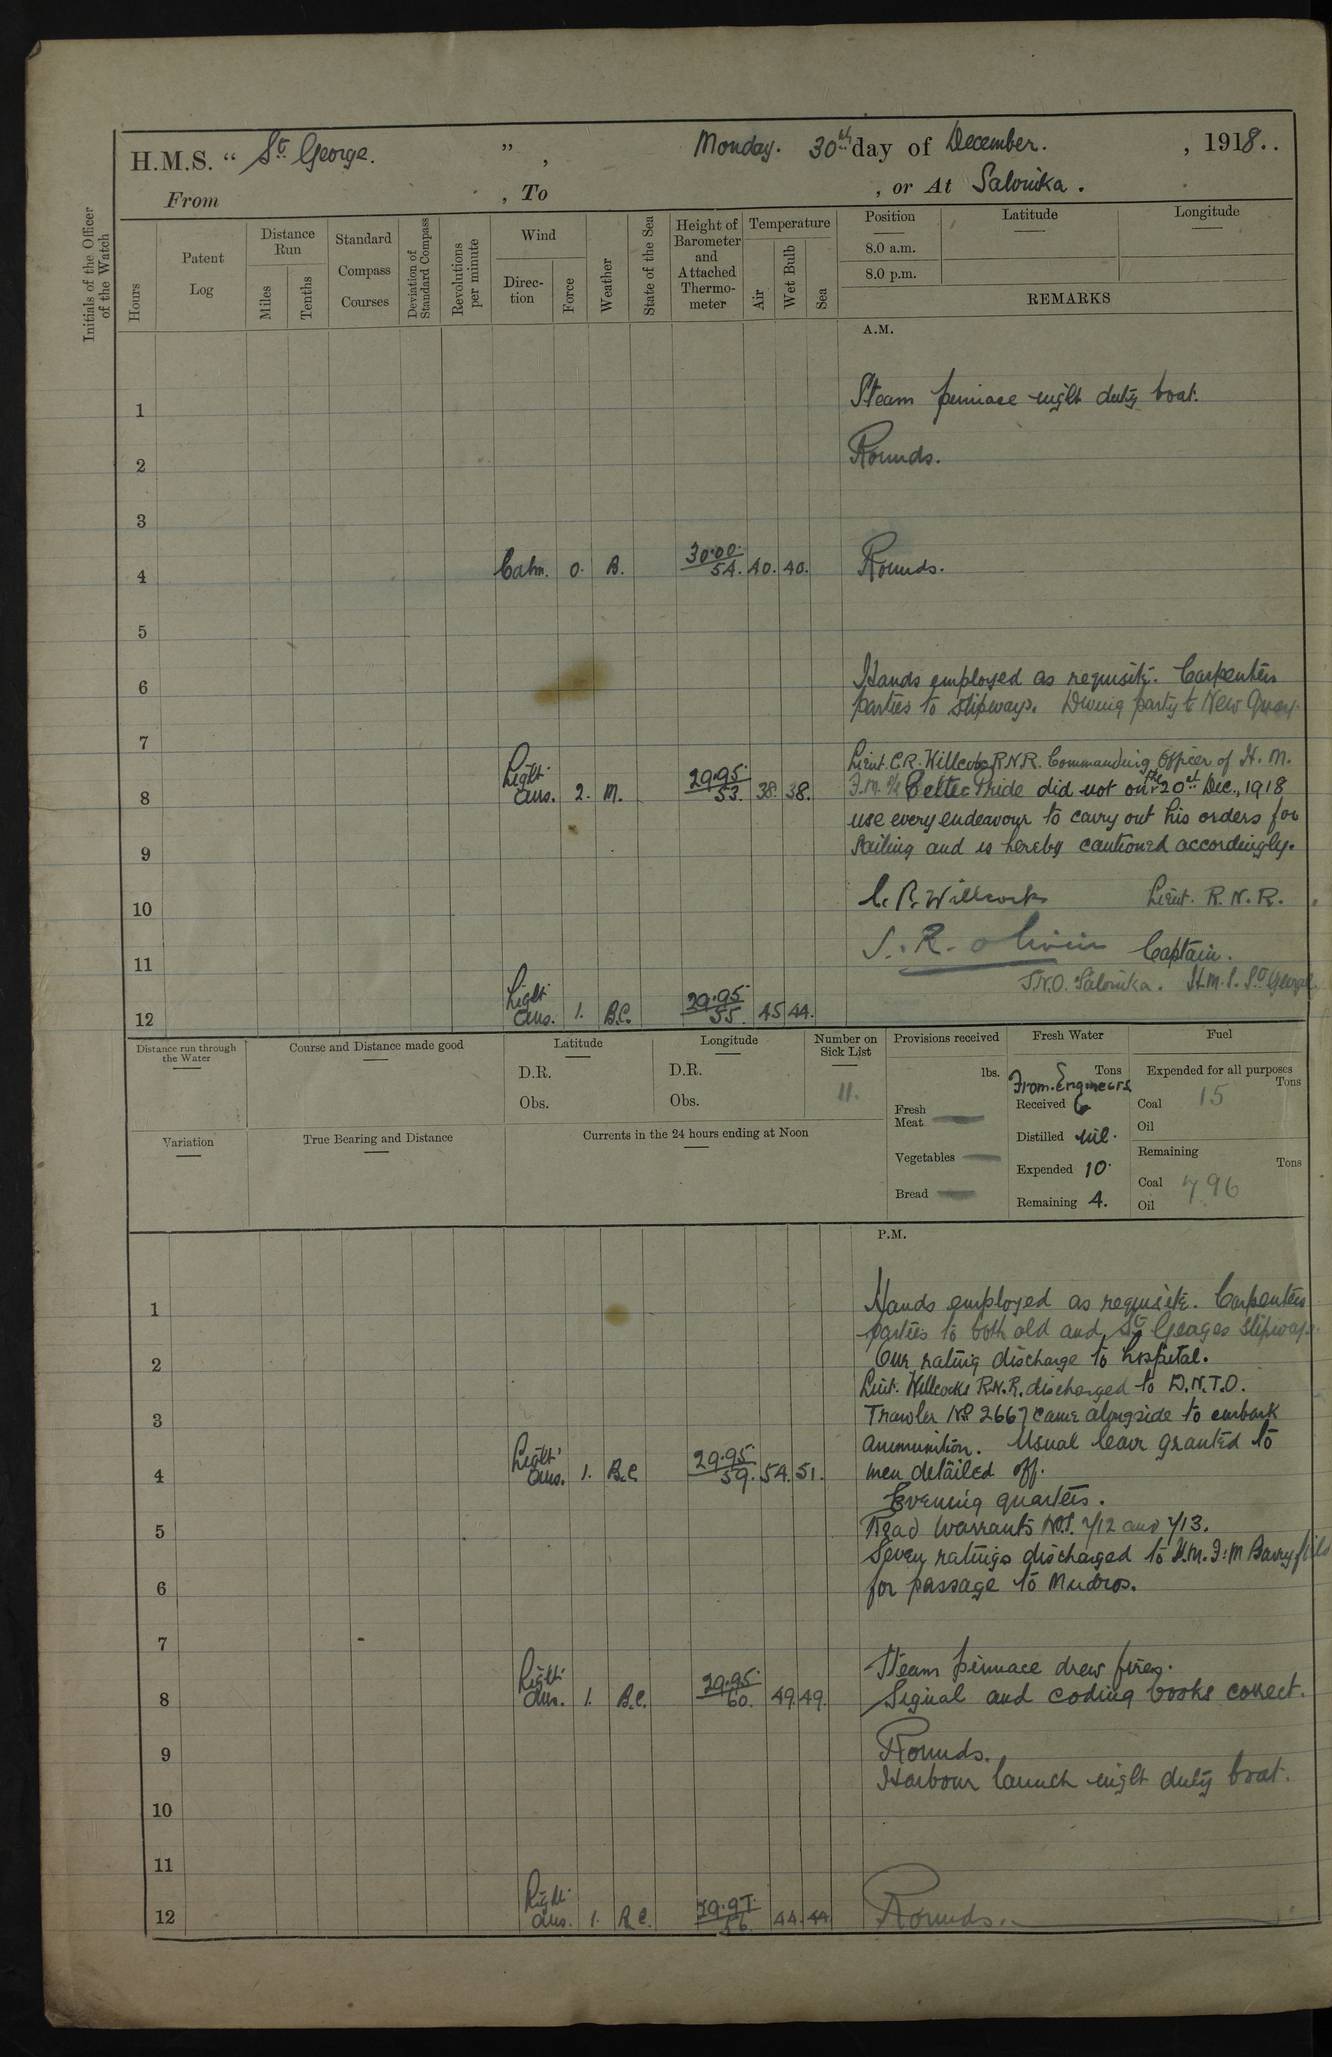 H.M.S. “ St. George. ”, Monday. 30th day of December. , 1918..
From , To , or At Salonika.
Initials of the Officer of the Watch
Hours
Patent Log
Distance Run
Miles
Tenths
Standard Compass Courses
Deviation of Standard Compass
Revolutions per minute
Wind
Direction
Force
Weather
State of the Sea
Height of Barometer and Attached Thermometer
Temperature
Air
Wet Bulb
Sea
Position
Latitude
Longitude
8.0 a.m.
8.0 p.m.
REMARKS
A.M.
1 Steam pinnace night duty boat.
2 Rounds.
3
4 Calm. 0. B. 30.00. 54. 40. 40. Rounds.
5
6 Hands employed as requisite. Carpenters
parties to slipways. Diving party to New Quay.
7
Lieut. C.R. Willcocks R.N.R. Commanding Officer of H.M.
8 Light Airs. 2. M. 29.95. 53. 38. 38. Celtic Pride did not on the 20th Dec., 1918
use every endeavour to carry out his orders for
9 sailing and is hereby cautioned accordingly.
10 C. R. Willcocks Lieut. R.N.R.
11 S. R. Olivier Captain.
S.N.O. Salonika. H.M.S. St. George.
12 Light Airs. 1. B.C. 29.95. 55. 45 44.
Distance run through the Water
Course and Distance made good
Latitude
D.R.
Obs.
Longitude
D.R.
Obs.
Number on Sick List
11.
Provisions received
lbs.
Fresh Meat
Vegetables
Bread
Fresh Water
Tons
From Engineers
Received 6
Distilled nil.
Expended 10.
Remaining 4.
Fuel
Expended for all purposes
Tons
Coal 15
Oil
Remaining
Tons
Coal 796
Oil
Variation
True Bearing and Distance
Currents in the 24 hours ending at Noon
P.M.
1 Hands employed as requisite. Carpenters
parties to both old and St Georges slipways.
2 One rating discharge to hospital.
Lieut. Willcocks R.N.R. discharged to D.N.T.O.
3 Trawler No. 2667 came alongside to embark
ammunition. Usual leave granted to
4 Light Airs. 1. B.C. 29.95. 59. 54. 51. men detailed off.
Evening quarters.
5 Read Warrants Nos. 712 and 713.
Seven ratings discharged to H.M.
6 for passage to Mudros.
7
Steam pinnace drew fires.
8 Light Airs. 1. B.C. 29.95. 60. 49. 49. Signal and coding books correct.
9 Rounds.
Harbour launch night duty boat.
10
11
12 Light Airs. 1. B.C. 29.97. 56. 44. 44 Rounds.